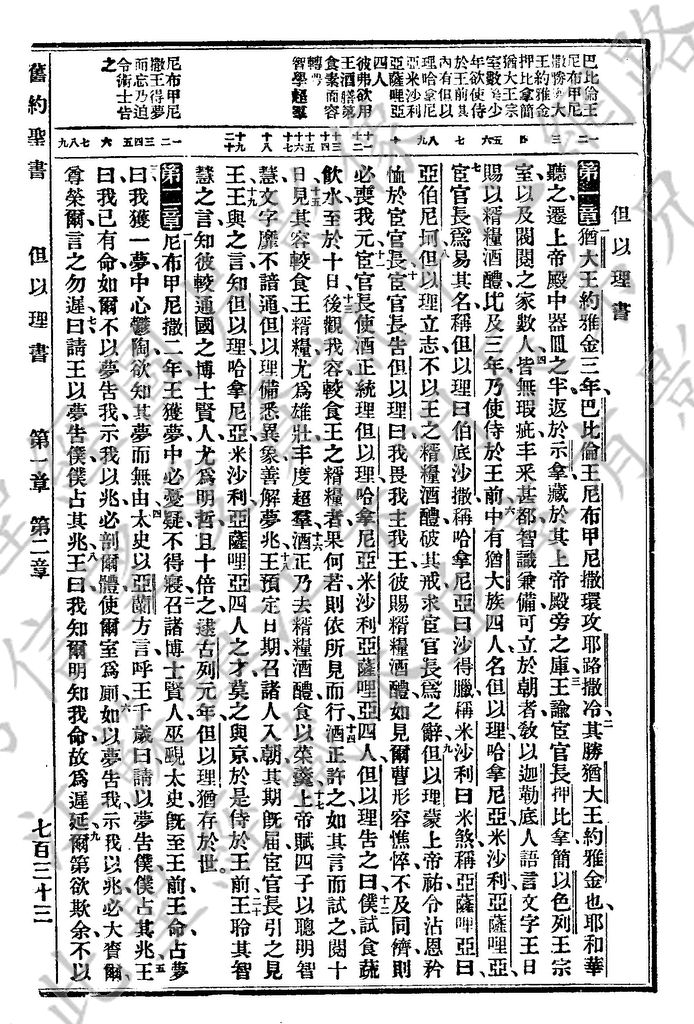 但以理書
第一章 猶大王約雅金三年巴比倫王尼布甲尼撒環攻耶路撒冷其勝猶大王約雅金也耶和華
聽之遷上帝殿中器皿之半返於示拿藏於其上帝殿旁之庫王諭宦官長押比拿簡以色列王宗
室以及閥閱之家數人皆無瑕疵丰釆甚都智識兼備可立於朝者敎以迦勒底人語言文字王日
賜以糈糧酒醴比及三年乃使侍於王前中有猶大族四人名但以理哈拿尼亞米沙利亞薩哩亞
宦官長爲易其名稱但以理曰伯底沙撒稱哈拿尼亞曰沙得臘稱米沙利曰米煞稱亞薩哩亞曰
亞伯尼坷但以理立志不以王之糈糧酒醴破其戒求宦官長爲之辭但以理蒙上帝祐令沾恩矜
恤於宦官長宦官長告但以理曰我畏我主我王彼賜糈糧酒醴如見爾曹形容憔悴不及同儕則
必喪我元宦官長使酒正統理但以理哈拿尼亞米沙利亞薩哩亞四人但以理告之曰僕試食蔬
飮水至於十日後觀我容較食王之糈糧者果何若則依所見而行酒正許之如其言而試之閱十
日見其容較食王糈糧尤爲雄壯丰度超羣酒正乃去糈糧酒醴食以菜羹上帝賦四子以聰明智
慧文字靡不諳通但以理備悉異象善解夢兆王預定日期召諸人入朝其期旣屆宦官長引之見
王王與之言知但以理哈拿尼亞米沙利亞薩哩亞四人之才莫之與京於是侍於王前王聆其智
慧之言知彼較通國之博士賢人尤爲明哲且十倍之逮古列元年但以理猶存於世。
第二章 尼布甲尼撒二年王獲夢中心憂疑不得寢召諸博士賢人巫覡太史旣至王前王命占夢
曰我獲一夢中心鬱陶欲知其夢而無由太史以亞蘭方言呼王千歲曰請以夢告僕僕占其兆王
曰我已有命如爾不以夢告我示我以兆必剖爾體使爾室爲厠如以夢告我示我以兆必大賚爾
尊榮爾言之勿遲曰請王以夢告僕僕占其兆王曰我知爾明知我命故爲遲延爾第欲欺余不以
巴比倫王
尼布甲尼
撒勝猶大
王約雅金
押比拿簡
猶大王宗
室數美少
年欲使侍
於王前其
內有但以
理哈拿尼
亞米沙利
亞薩哩亞
四人
彼弗欲用
王酒膳第
食素而容
智學超羣
尼布甲尼
撒王得夢
而忘乃迫
令術士告
之
舊約聖書 但以理書 第一章 第二章 七百三十三